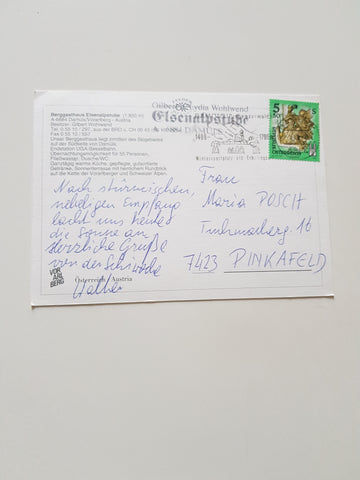 Berggasthaus Elsenalpstube (1.800 m)
A-6884 Damüls/Vorarlberg - Austria
Besitzer: Gilbert Wohlwend
Tel. 0 55 10 / 297, aus der BRD u. CH 00 43
Fax 0 55 10 /
Unser Berggasthaus liegt inmitten des Skigebietes
auf der Südseite von Damüls,
Endstation UGA-Sesselbahn,
Übernachtungsmöglichkeit für 55 Personen,
Fließwasser, Dusche/WC
Ganztägig warme Küche, gepflegte, gutsortierte
Getränke, Sonnenterrasse mit herrlichem Rundblick
auf die Kette der Vorarlberger und Schweizer Alpen.
Gilbert Lydia Wohlwend
Elsenalpstube
A - 6884 DAMÜLS
5 S
Nach stürmischen,
nebeligen Empfang
lacht uns heute
die Sonne an,
Herzliche Grüße
von der Schiwoche
Walter
Frau
Maria POSCH
16
7423 PINKAFELD
VOR
ARL
BERG
Österreich / Austria